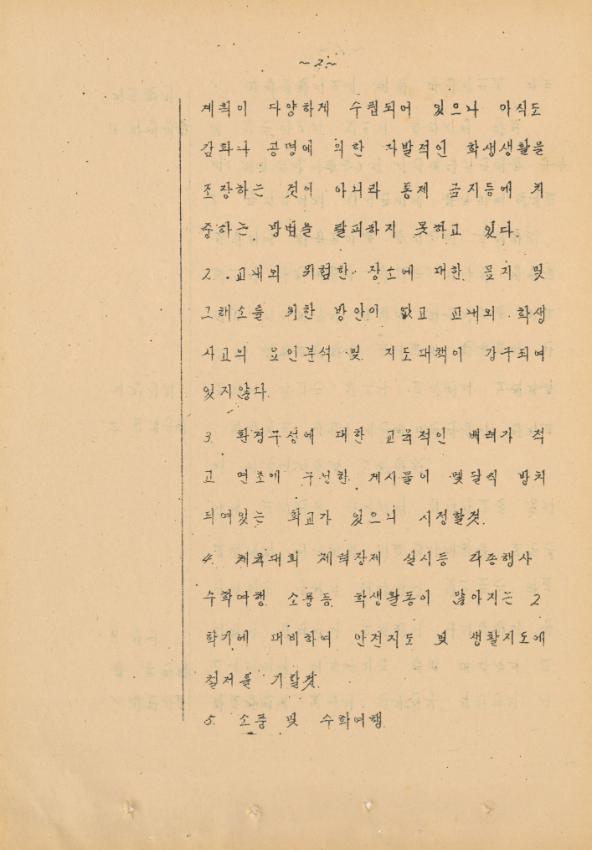 ~2~
계획이 다양하게 수립되어 있으나 아직도
감화나 공명에 의한 자발적인 학생생활을
조장하는 것이 아니라 통제 금지등에 치
중하는 방법을 탈피하지 못하고 있다.
2. 교내외 위험한 장소에 대한 표지 및
그해소를 위한 방안이 없고 교내외 학생
사고의 요인분석 및 지도대책이 강구되여
있지않다.
3. 환경구성에 대한 교육적인 배려가 적
고 연초에 구성한 게시물이 몇달식 방치
되여있는 학교가 있으니 시정할것.
4. 체육대회 체력장제 실시등 각종행사
수학여행 소풍등 학생활동이 많아지는 2
학기에 대비하여 안전지도 및 생활지도에
철저를 기할것.
5. 소풍 및 수학여행